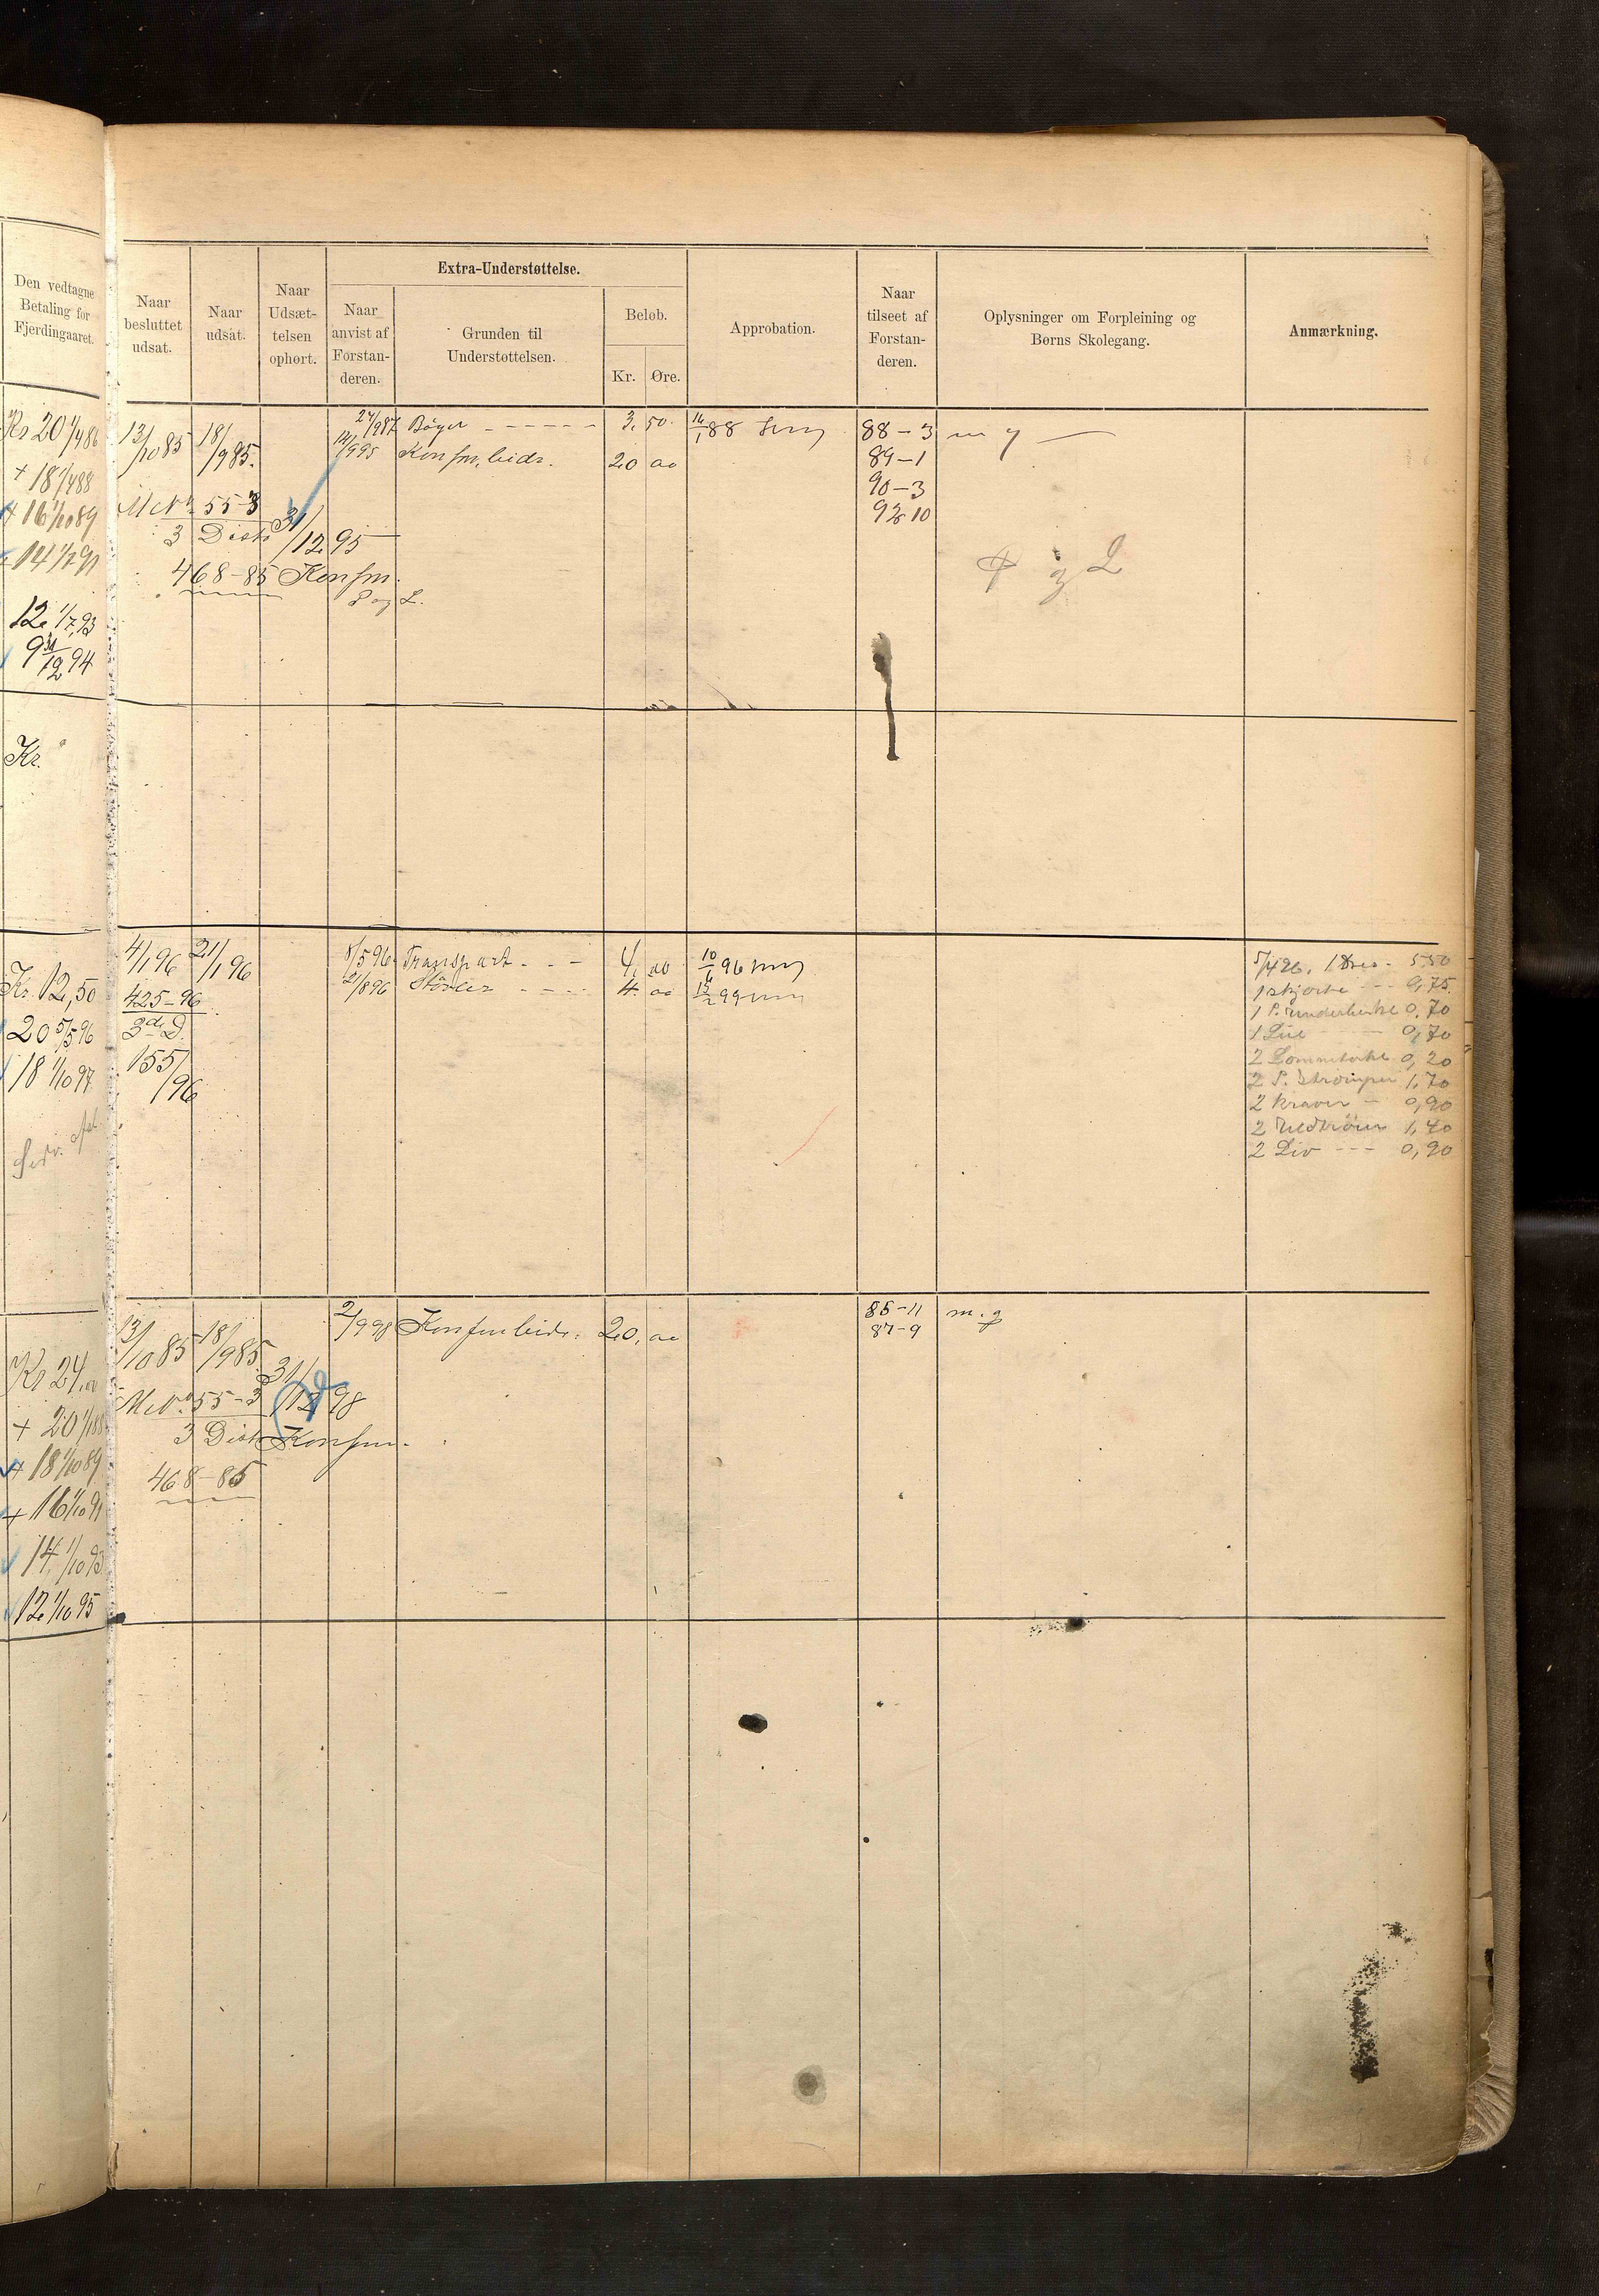 Den vedtagne
Betaling for
Fjerdingaaret.
Naar
besluttet
udsat.
Naar
udsat.
Naar
Udsæt-
telsen
ophørt.
Extra-Understøttelse.
Naar
anvist af
Forstan-
deren.
Grunden til
Understøttelsen.
Beløb.
Kr. Øre.
Approbation.
Naar
tilseet af
Forstan-
deren.
Oplysninger om Forpleining og
Børns Skolegang.
Anmærkning.
Kr 20 1/4 86
+ 18 1/4 88
+ 16 1/10 89
14 1/7 91
12 1/7 93
9 31/12 94
13/10 85 18/9 85. 27/9 87 Bøger - - - - - - 3, 50. 88 88-3 m g
/9 95 Konfm. bidr. 20 oo 89-1
90-3
M No 55-3 92-10
3 Distr 31/12 95
468-85 Konfm.
P og L.
P g L
Kr.
Kr. 12,50
20 5/5 96
18 1/10 97
4/1 96 21/1 96 8/5 96 Transport - - - 4, oo 10/6 96
425-96 2/8 96 Støvler - - - - 4. oo 15/2 99
3die D.
155/96
5/4 96. 1 Dres - 5 50
1 skjorte - - - 0,75.
1 P. underbukse 0,70
1 Lue - 0,70
2 Lommetørkl 0,20
2 P. Strømper 1,70
2 Kraver - 0,90
2 Uldtrøier 1,40
2 Liv - - - 0,90
Kr 24,oo
+ 20 1/1 88
+ 18 1/10 89
+ 16 1/10 91
14, 1/10 93
12 1/10 95
13/10 85 18/9 85 2/9 98 Konfm bidr. 20, oo 85-11 m. g
87-9
M No 55-3 31/12 98
3 Distr Konfm.
468-85